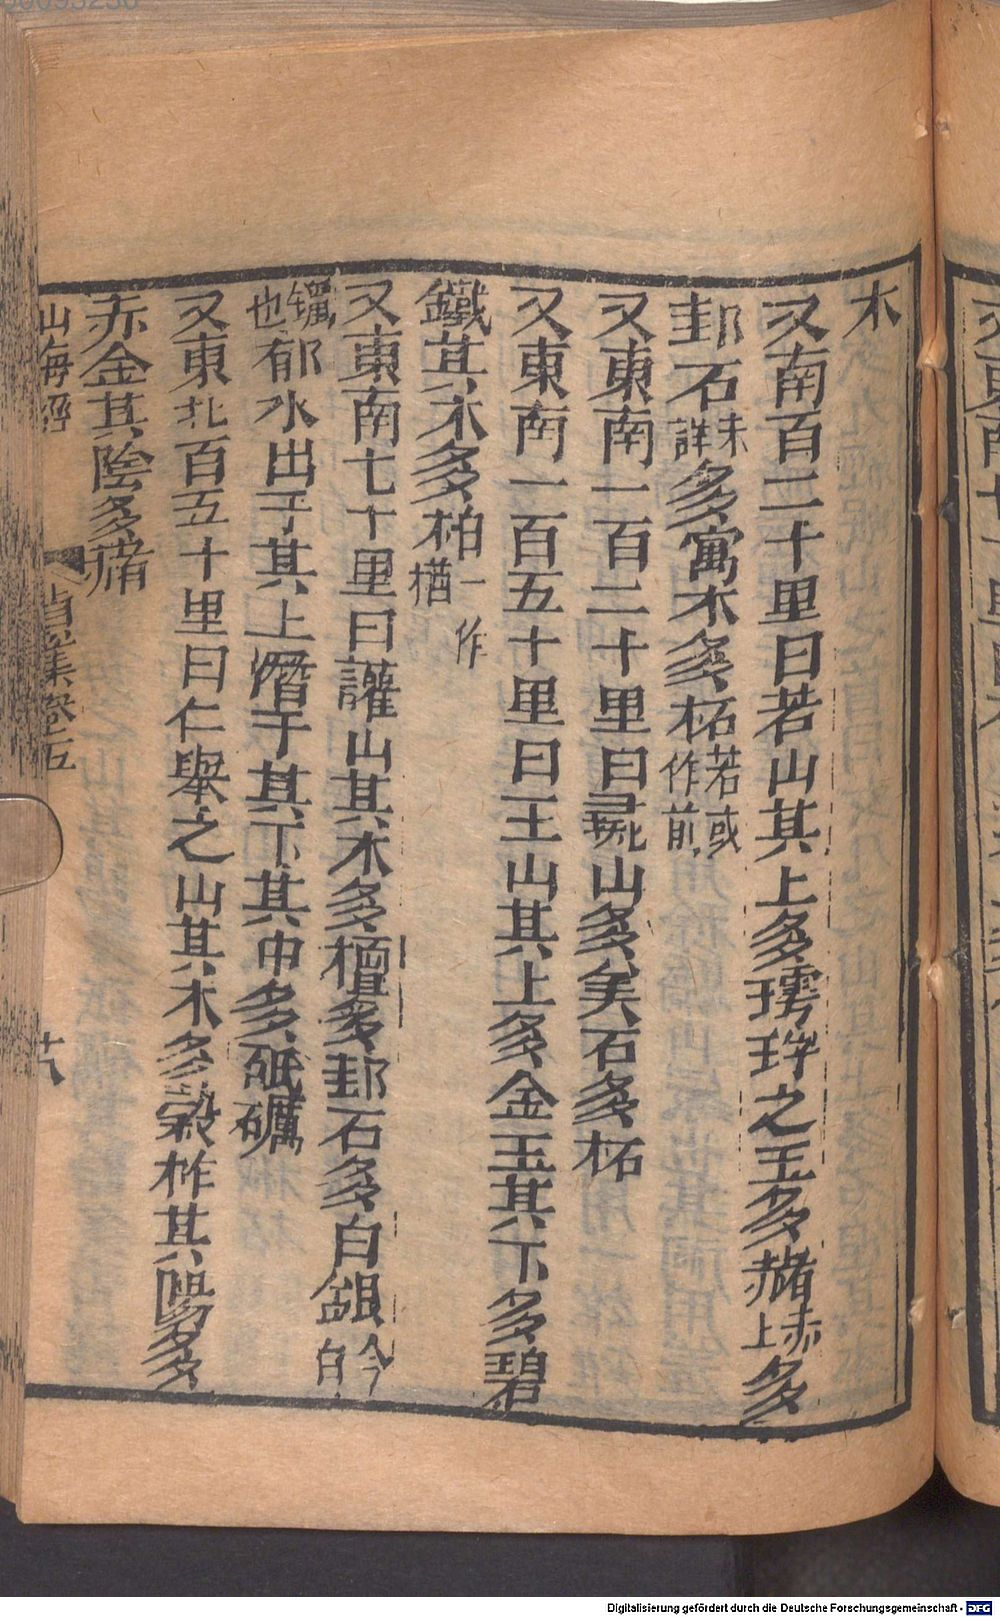 木
又南百二十里曰若山其上多㻬琈之玉多赭赤上多
邽石未詳多寓木多柘若或作前
又東南一百二十里曰彘山多美石多柘
又東南一百五十里曰玉山其上多金玉其下多碧
鐵其木多柏一作楢
又東南七十里曰讙山其木多檀多邽石多白錫今白
鑞也郁水出于其上潛于其下其中多砥礪
又東北百五十里曰仁舉之山其木多榖柞其陽多
赤金其陰多赭
山海經
卷五
Digitalisierung gefördert durch die Deutsche Forschungsgemeinschaft - DFG